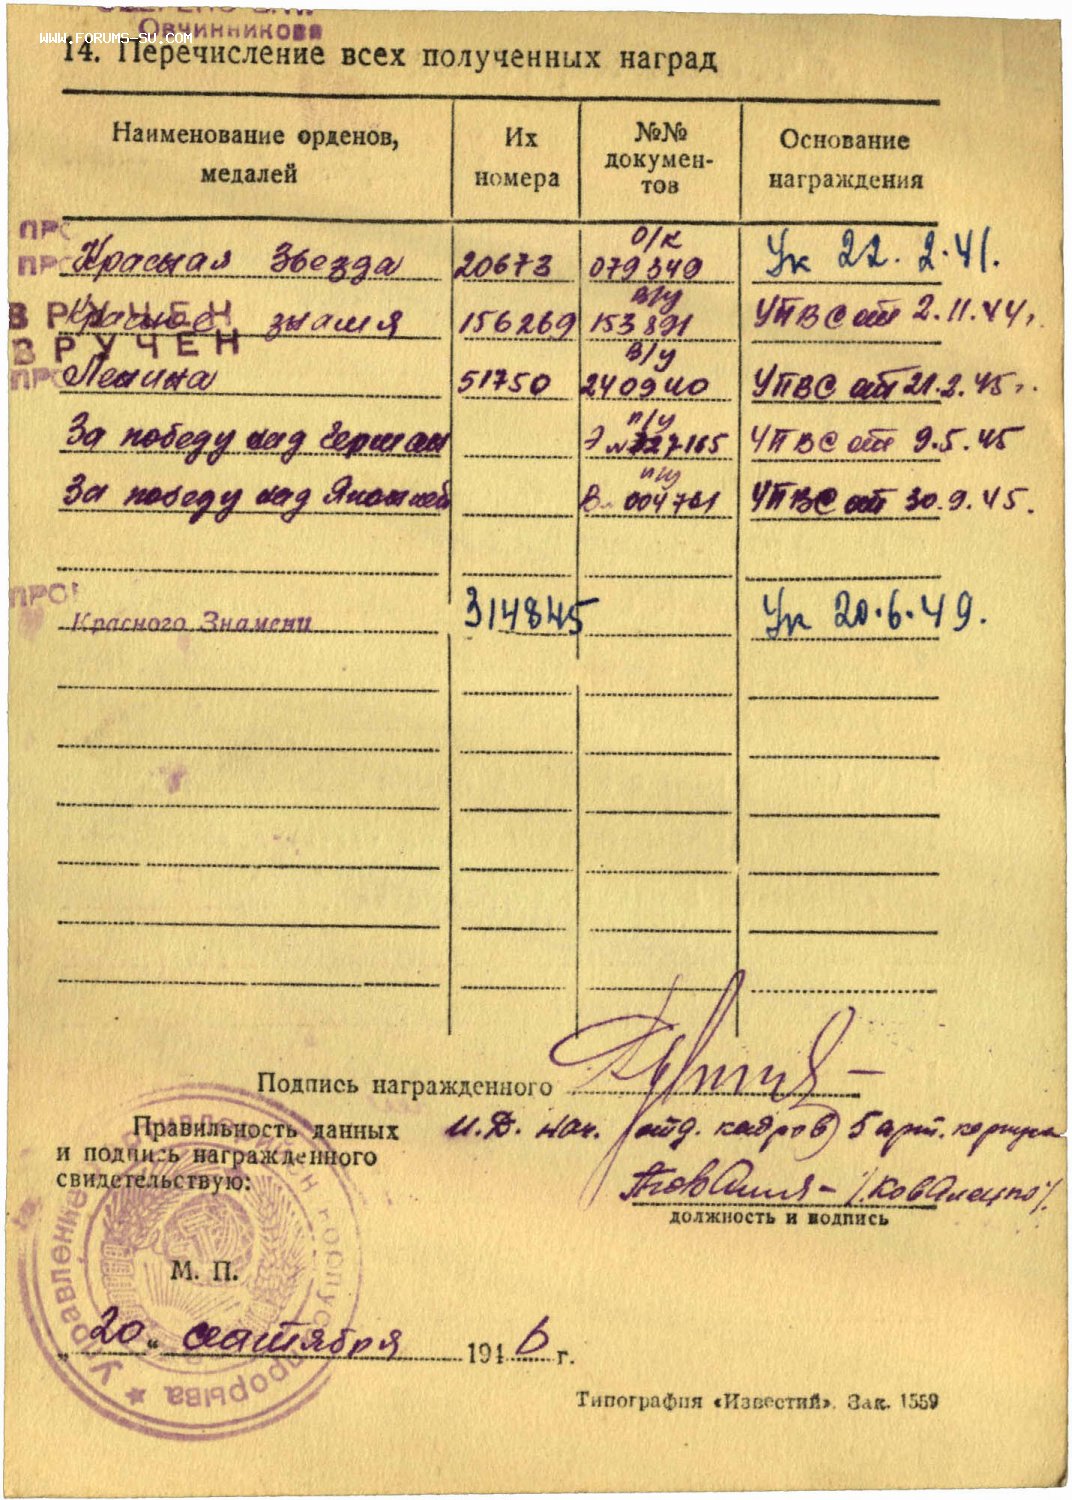 WWW.FORUMS-SU.COM
Овчинникова
14. Перечисление всех полученных наград
Наименование орденов, медалей
Их номера
№№ докумен-тов
Основание награждения
Красная Звезда 20673 о/к 079349 Ук 22.2.41.
Красное знамя 156269 в/у 153891 УПВС от 2.11.44г.
ВРУЧЕН
ВРУЧЕН
Ленина 51750 в/у 240940 УПВС от 21.2.45г.
За победу над Герман п/у 327165 УПВС от 9.5.45
За победу над Японией п/у 004701 УПВС от 30.9.45.
Красного Знамени 314845 Ук 20.6.49.
Подпись награжденного
Правильность данных
и подпись награжденного
свидетельствую:
И.Д. нач. отд. кадров 5 арт. корпуса
должность и подпись
М. П.
Управление
корпус
прорыва
„20“ сентября 1946 г.
Типография «Известий». Зак. 1559